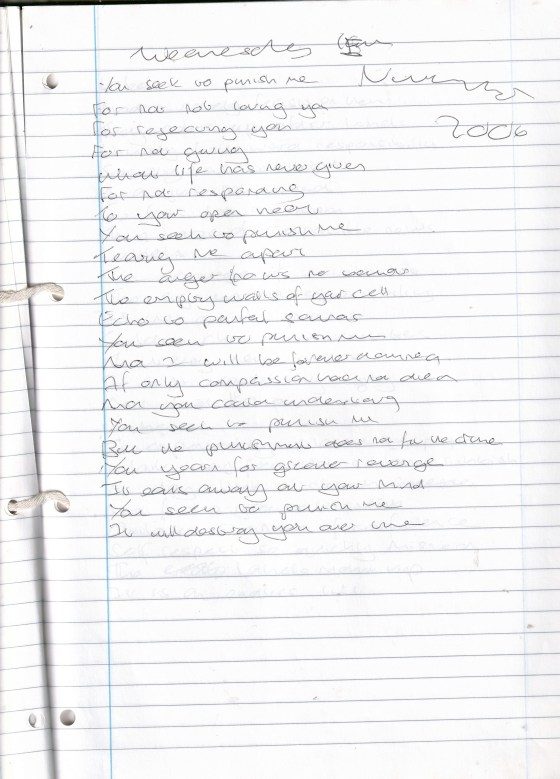 Wednesday
You seek to punish me
For not not loving you
2006
For rejecting you
For not giving
What life has never given
For not responding
To your open heart
You seek to punish me
Tearing me apart
The anger knows no
The empty walls of your cell
Echo to painful
You seek to punish me
And I will be forever damned
If only compassion had not died
And you could understand
You seek to punish me
But the punishment does not fit the crime
You yearn for greater revenge
It eats away at your mind
You seek to punish me
It will destroy you over time